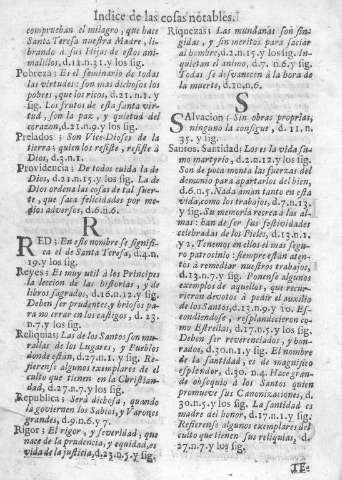 Indice de las cosas notables.
comprueban el milagro, que hace
Santa Teresa nuestra Madre, li-
brando à sus Hijas de estos ani-
malillos, d.11.n.31. y los sig.
Pobreza: Es el seminario de todas
las virtudes: son mas dichosos los
pobres, que los ricos, d.21.n.1. y
sig. Los frutos de esta santa vir-
tud, son la paz, y quietud del
corazon, d.21.n.9. y los sig.
Prelados; Son Vice-Dioses de la
tierra; quien los resiste, resiste à
Dios, d.3.n.1.
Providencia; De todos cuida la de
Dios, d.21.n.15. y los sig. La de
Dios ordena las cosas de tal suer-
te, que saca felicidades por me-
dios adversos, d.6.n.6.
R
RED; En este nombre se signifi-
ca el de Santa Teresa, d.4.n.
19. y los sig.
Reyes; Es muy util à los Principes
la leccion de las historias, y de
libros sagrados, d.16.n.12. y sig.
Deben ser prudentes, y briosos pa-
ra no errar en los castigos, d. 23.
n.7. y los sig.
Reliquias; Las de los Santos son mu-
rallas de los Lugares, y Pueblos
donde están, d.27.n.1. y sig. Re-
fierense algunos exemplares de el
culto que tienen en la Christian-
dad, d.27.n.7. y los sig.
Republica; Será dichosa, quando
la goviernen los Sabios, y Varones
grandes, d.9.n.6. y 7.
Rigor; El rigor, y severidad, que
nace de la prudencia, y equidad, es
vida de la justicia, d.23.n.5. y sig.
Riquezas; Las mundanas son fin-
gidas, y sin meritos para saciar
al hombre, d.2.n.15. y los sig. In-
quietan el animo, d.7. n.6. y sig.
Todas se desvanecen à la hora de
la muerte, d.10.n.6.
S
Salvacion; Sin obras proprias,
ninguno la consigue, d. 11. n.
35. y sig.
Santos. Santidad; Los es la vida su-
mo martyrio, d.2.n.12. y los sig.
Son de poca monta las fuerzas del
demonio para apartarlos del bien,
d.6.n.5. Nada aman tanto en esta
vida, como los trabajos, d.7.n.13.
y sig. Su memoria recrea à las al-
mas: han de ser sus festividades
celebradas de los Fieles, d.13.n.1.
y 2. Tenemos en ellos el mas segu-
ro patrocinio: siempre están aten-
tos à remediar nuestros trabajos,
d.13.n.7. y sig. Ponense algunos
exemplos de aquellos, que recur-
rieron devotos à pedir el auxilio
de los Santos, d.13.n.9. y 10. Es-
condiendose, resplandecieron co-
mo Estrellas, d.17.n.5. y los sig.
Deben ser reverenciados, y hon-
rados, d.30.n.1. y sig. El nombre
de la santidad, es de magnifico
esplendor, d.30. n.4. Hace gran-
de obsequio à los Santos quien
promueve sus Canonizaciones, d.
30.n.5. y los sig. La santidad es
madre del honor, d.17.n.1. y sig.
Refierense algunos exemplares del
culto que tienen sus reliquias, d.
27.n.7. y los sig.
TE-